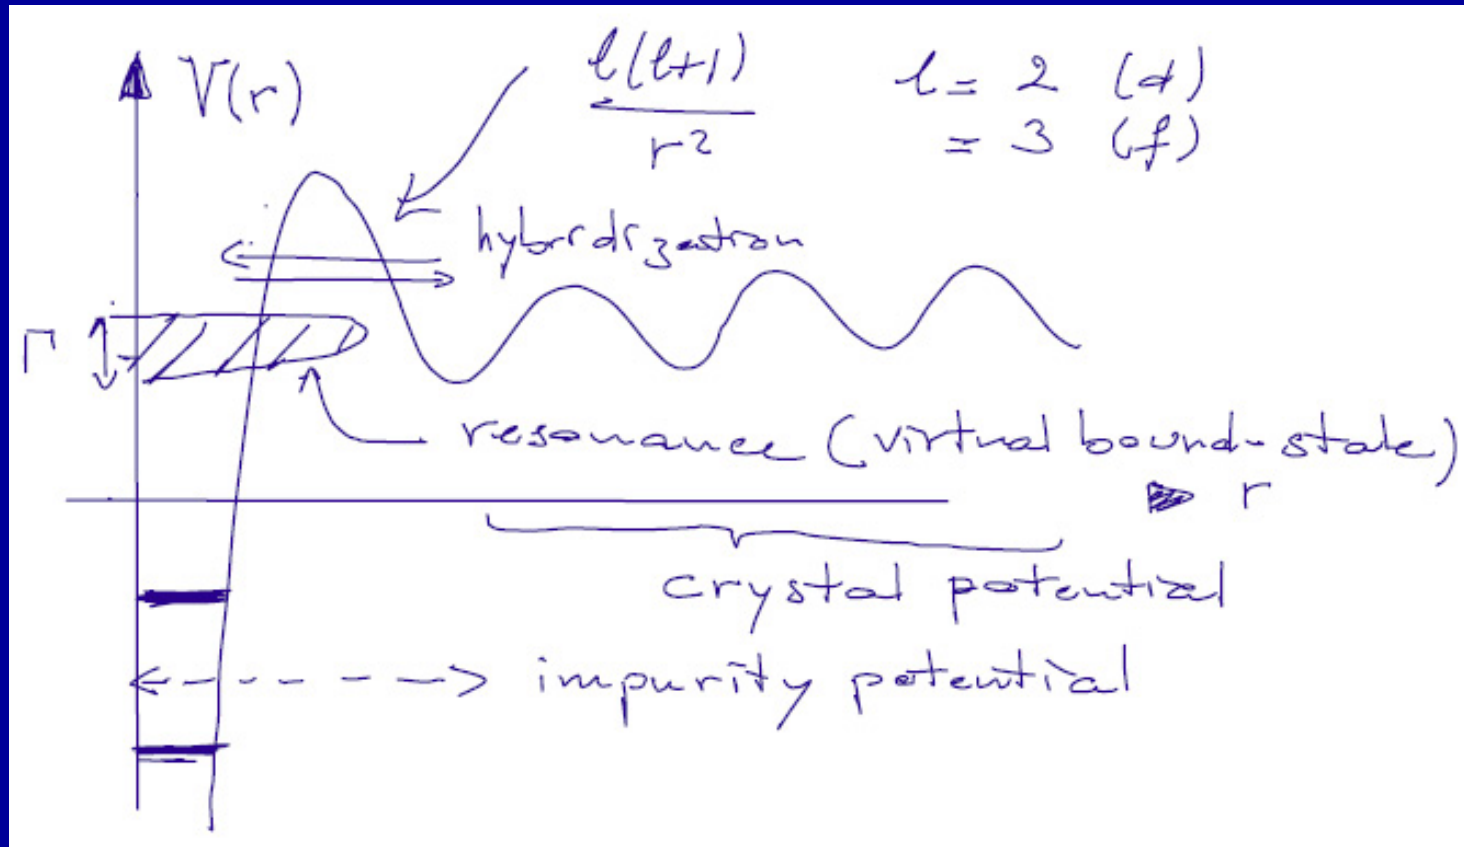 V(r)
l(l+1)
r²
l = 2 (d)
= 3 (f)
hybridization
Γ
resonance (virtual bound-state)
r
crystal potential
impurity potential